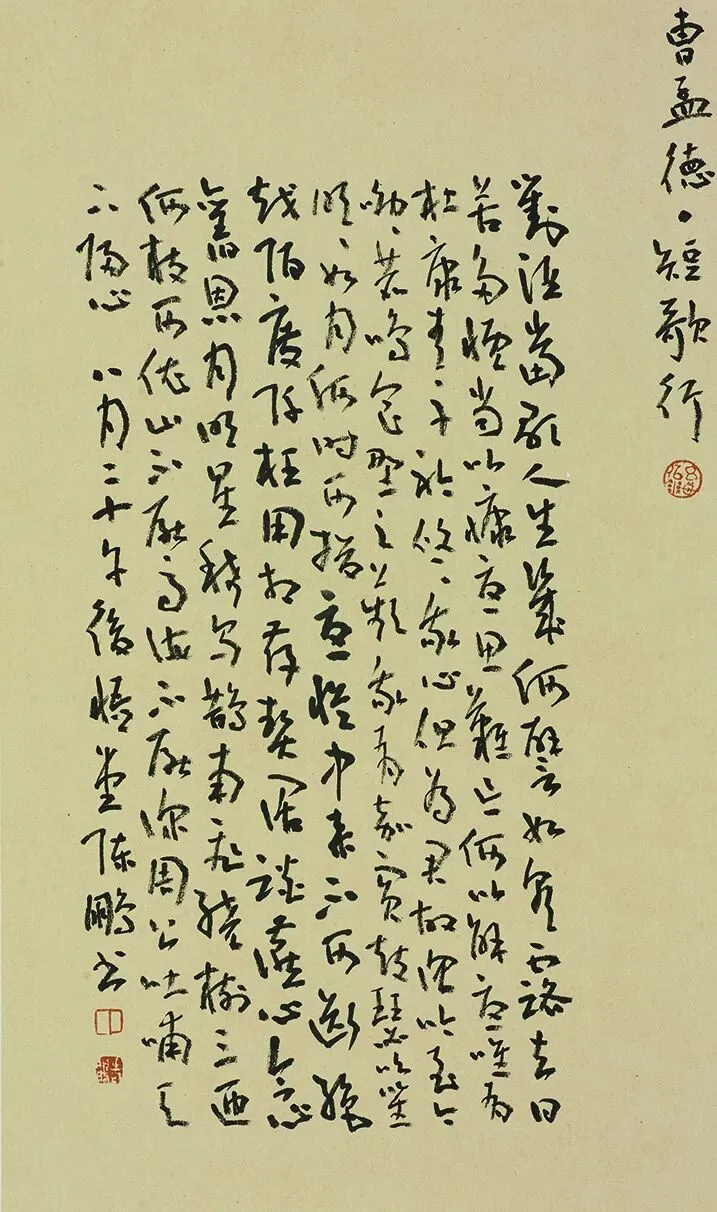 曹孟德·短歌行
對酒當歌人生幾何譬如朝露去日
苦多慨當以慷憂思難忘何以解憂唯有
杜康青〻子衿悠〻我心但為君故沉吟至今
呦〻鹿鳴食野之苹我有嘉賓鼓瑟吹笙
明〻如月何時可掇憂從中來不可斷絕
越陌度阡枉用相存契闊談讌心念
舊恩月明星稀烏鵲南飛繞樹三匝
何枝可依山不厭高海不厭深周公吐哺天
下歸心 八月二十午後悟堂陳鵬書